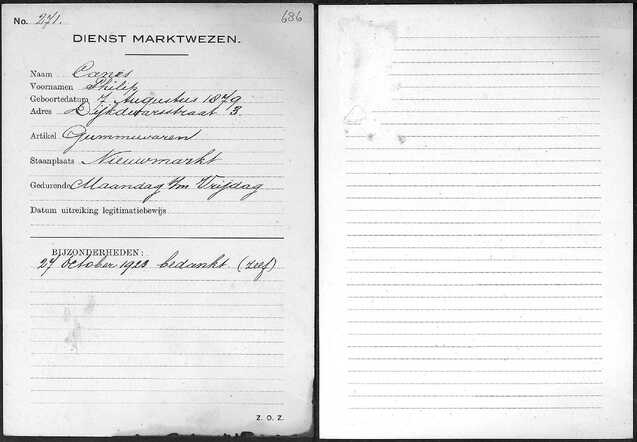 No. 271. 686
DIENST MARKTWEZEN.
Naam Canes
Voornamen Philip
Geboortedatum 7 Augustus 1879
Adres Dijkdwarsstraat 3.
Artikel Gummiwaren
Staanplaats Nieuwmarkt
Gedurende Maandag t/m Vrijdag
Datum uitreiking legitimatiebewijs
BIJZONDERHEDEN:
27 October 1923 bedankt (zelf)
Z. O. Z.